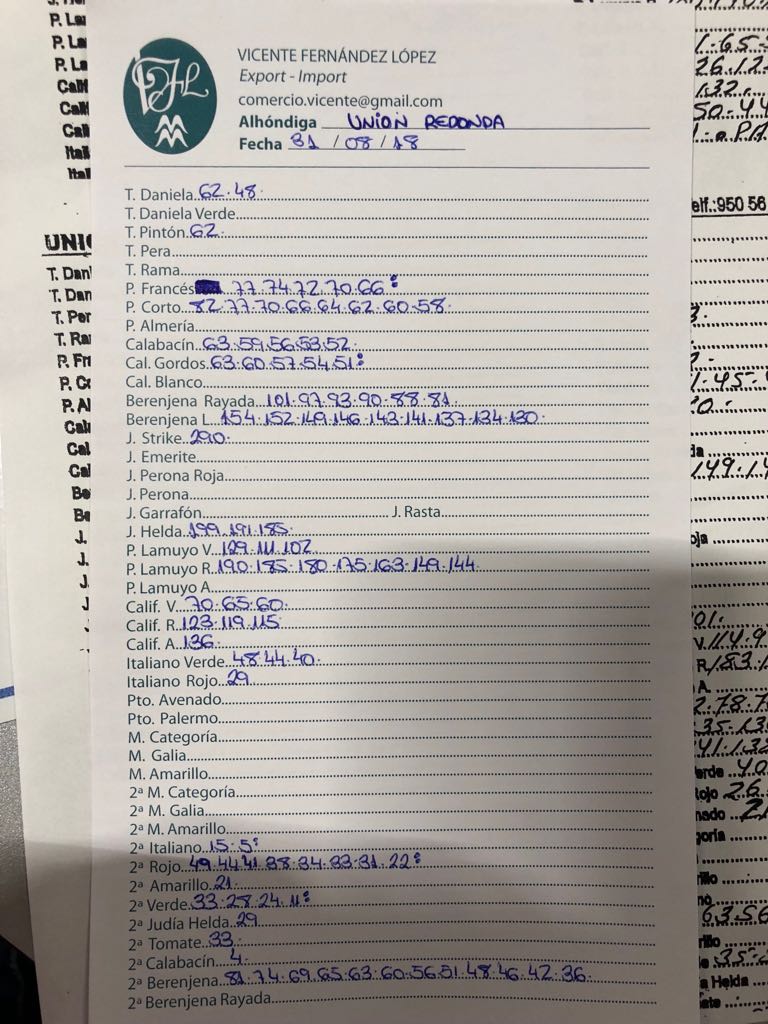 VFL
VICENTE FERNÁNDEZ LÓPEZ
Export - Import
comercio.vicente@gmail.com
Alhóndiga UNION REDONDA
Fecha 31 / 08 / 18
T. Daniela 62.48.
T. Daniela Verde
T. Pintón 62.
T. Pera
T. Rama
P. Francés 77.74.72.70.66:
P. Corto 82.77.70.66.64.62.60.58.
P. Almería
Calabacín 63.59.56.53.52
Cal. Gordos 63.60.57.54.51:
Cal. Blanco
Berenjena Rayada 101.97.93.90.88.81.
Berenjena L. 154.152.149.146.143.141.137.134.130.
J. Strike 290.
J. Emerite
J. Perona Roja
J. Perona
J. Garrafón J. Rasta
J. Helda 199.191.185.
P. Lamuyo V. 129.111.102
P. Lamuyo R. 190.185.180.175.163.149.144
P. Lamuyo A
Calif. V. 70.65.60.
Calif. R. 123.119.115
Calif. A. 136.
Italiano Verde 48.44.40.
Italiano Rojo 29
Pto. Avenado
Pto. Palermo
M. Categoría
M. Galia
M. Amarillo
2ª M. Categoría
2ª M. Galia
2ª M. Amarillo
2ª Italiano 15.5:
2ª Rojo 49.44.41.38.34.33.31.22:
2ª Amarillo 21.
2ª Verde 33.28.24.11:
2ª Judía Helda 29
2ª Tomate 33.
2ª Calabacín 4.
2ª Berenjena 81.74.69.65.63.60.56.51.48.46.42.36.
2ª Berenjena Rayada